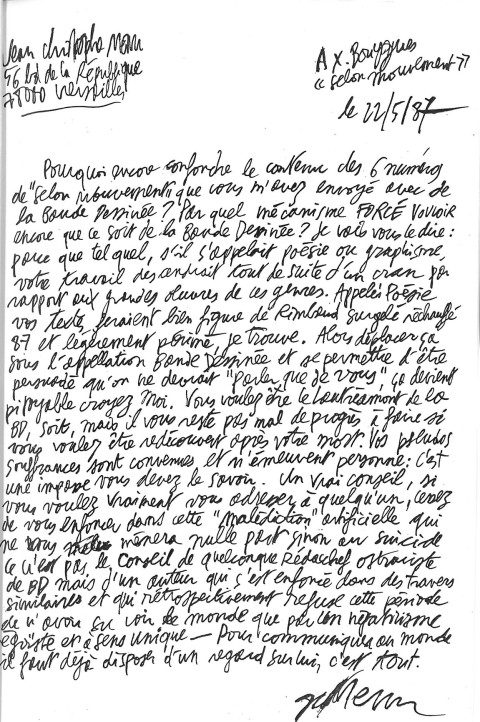 Jean Christophe Menu
56 bd de la République
78000 Versailles
A X. Bouyssou
"selon mouvement"
le 22/5/87
Pourquoi encore confondre le contenu des 6 numéros
de "Selon mouvement" que vous m'avez envoyé avec de
la Bande Dessinée ? Par quel mécanisme FORCÉ vouloir
encore que ce soit de la Bande Dessinée ? Je vais vous le dire :
parce que tel quel, s'il s'appelait poésie ou graphisme,
votre travail descendrait tout de suite d'un cran par
rapport aux grandes œuvres de ces genres. Appelés Poésie
vos textes feraient bien figure de Rimbaud surgelé réchauffé
87 et légèrement périmé, je trouve. Alors déplacer ça
sous l'appellation Bande Dessinée et se permettre d'être
persuadé qu'on ne devrait "parler que de vous", ça devient
pitoyable croyez moi. Vous voulez être le Lautréamont de la
BD, soit, mais il vous reste pas mal de progrès à faire si
vous voulez être redécouvert après votre mort. Vos pseudos
souffrances sont convenues et n'émeuvent personne : c'est
une impasse vous devez le savoir. Un vrai conseil, si
vous voulez vraiment vous adresser à quelqu'un, cessez
de vous enfoncer dans cette "malédiction" artificielle qui
ne vous mènera nulle part sinon au suicide
Ce n'est pas le conseil de quelconque Rédacchef ostraciste
de BD mais d'un auteur qui s'est enfoncé dans des travers
similaires et qui rétrospectivement refuse cette période
de n'avoir su voir de monde que par un négativisme
égoïste et à sens unique — Pour communiquer au monde
il faut déjà disposer d'un regard sur lui, c'est tout.
JC Menu